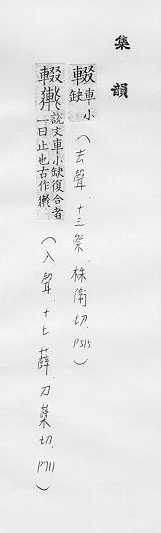 集韻
輟車小缺（去聲．十三祭．株衛切．P515）
輟𨏮說文車小缺復合者一曰止也古作𨏮（入聲．十七薛．